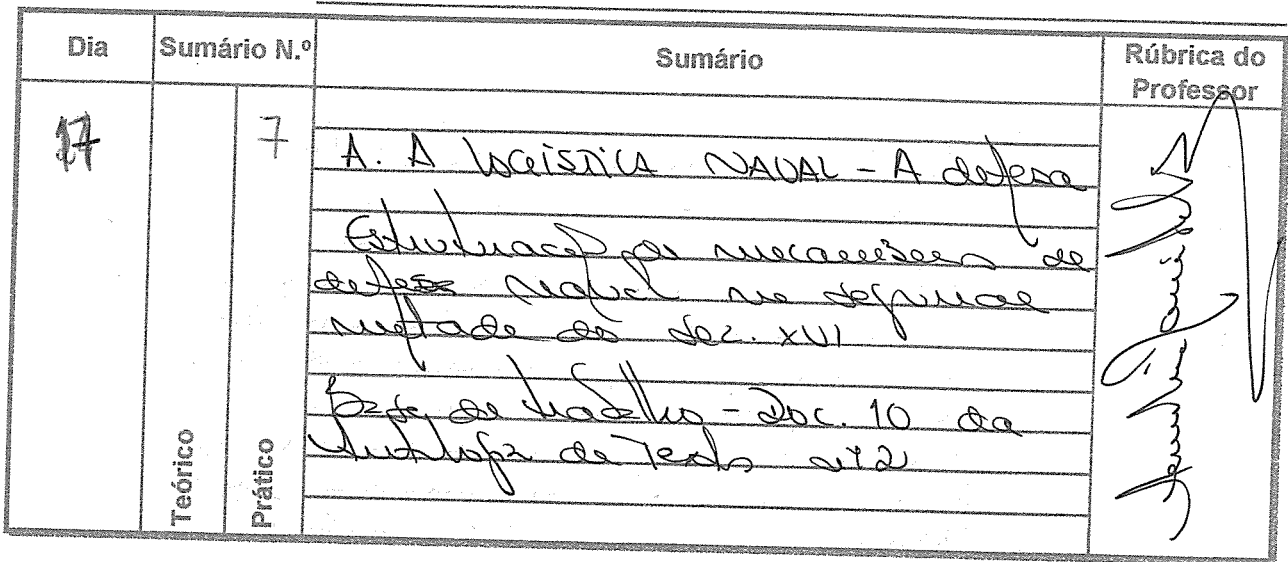 Dia
Sumário N.º
Sumário
Rúbrica do
Professor
17
7
A. A LOGÍSTICA NAVAL - A defesa
Estruturação dos mecanismos de
defesa naval na segunda
metade do séc. XVI
Base de trabalho - Doc. 10 da
Antologia de Textos nº 2
Teórico
Prático